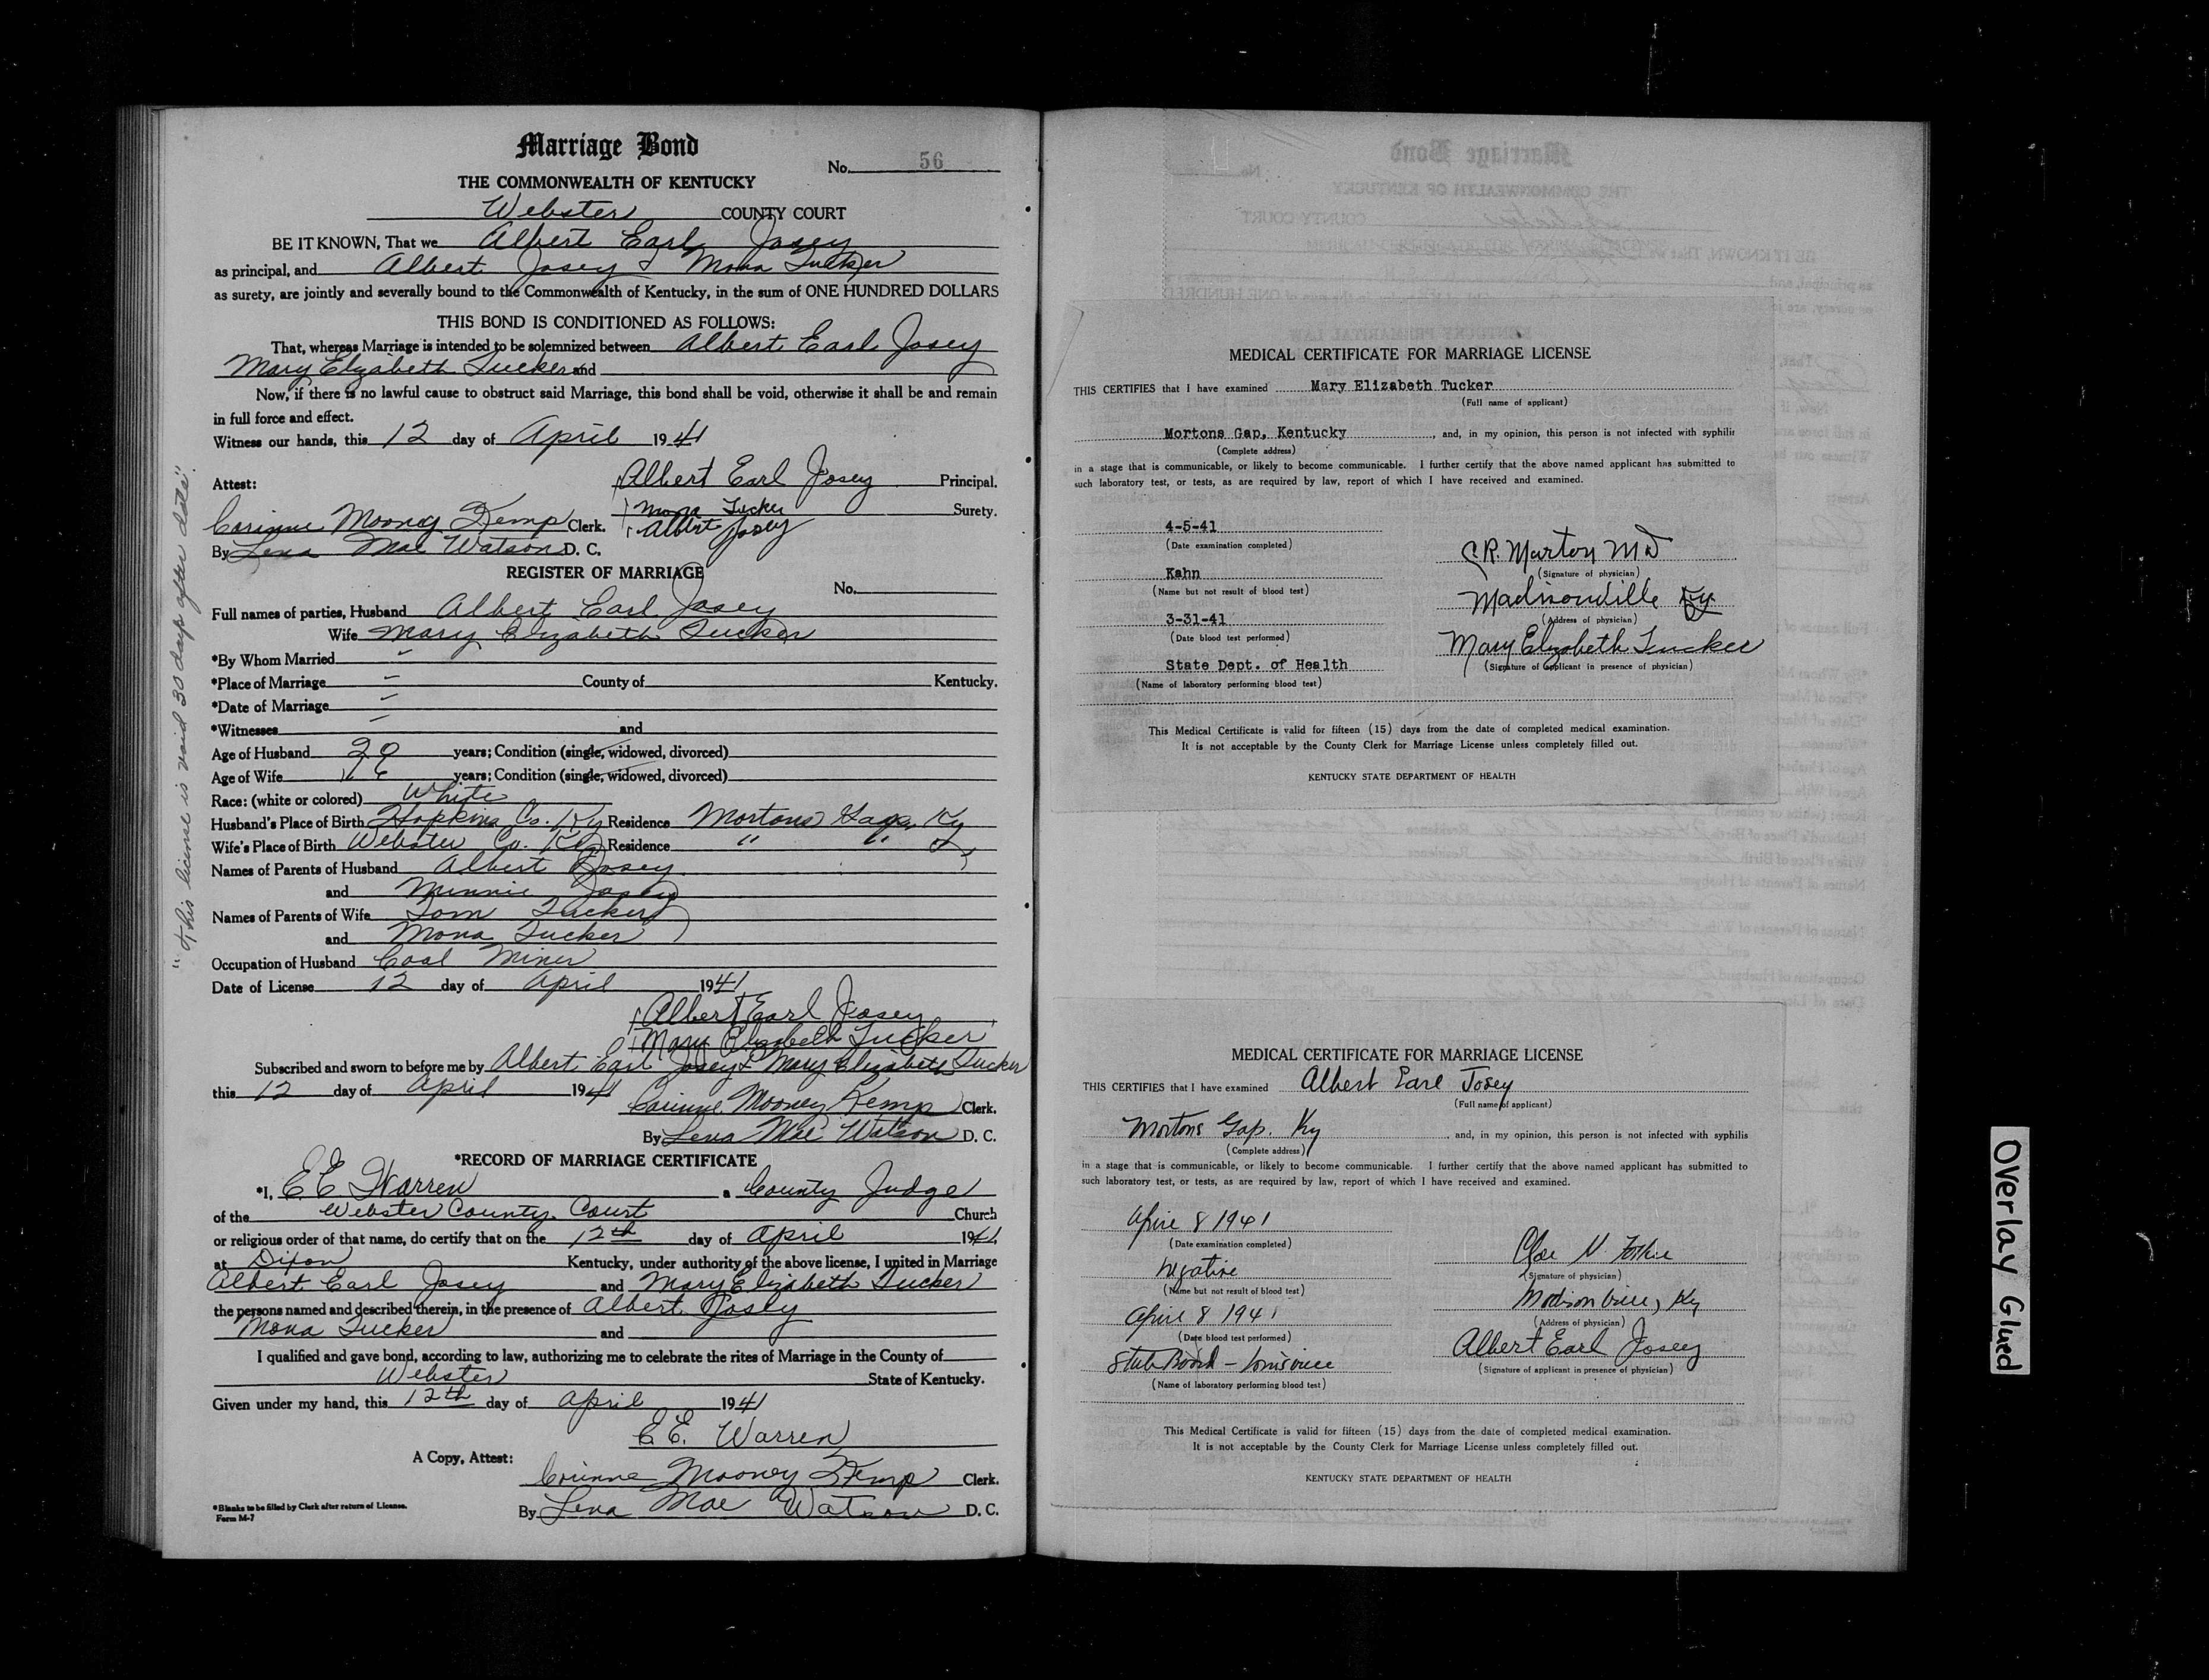 Marriage Bond
No. 56
THE COMMONWEALTH OF KENTUCKY
Webster COUNTY COURT
BE IT KNOWN, That we Albert Earl Josey
as principal, and Albert Josey & Mona Tucker
as surety, are jointly and severally bound to the Commonwealth of Kentucky, in the sum of ONE HUNDRED DOLLARS
THIS BOND IS CONDITIONED AS FOLLOWS:
That, whereas Marriage is intended to be solemnized between Albert Earl Josey
Mary Elizabeth Tucker and
Now, if there is no lawful cause to obstruct said Marriage, this bond shall be void, otherwise it shall be and remain
in full force and effect.
Witness our hands, this 12 day of April 1941
Albert Earl Josey Principal.
Attest:
Mona Tucker Surety.
Corinne Mooney Kemp Clerk. Albert Josey
By Lena Mae Watson D. C.
REGISTER OF MARRIAGE
No.
Full names of parties, Husband Albert Earl Josey
Wife Mary Elizabeth Tucker
*By Whom Married
*Place of Marriage County of Kentucky.
*Date of Marriage
*Witnesses and
Age of Husband 20 years; Condition (single, widowed, divorced)
Age of Wife 16 years; Condition (single, widowed, divorced)
Race: (white or colored) White
Husband's Place of Birth Hopkins Co. Ky Residence Mortons Gap, Ky
Wife's Place of Birth Webster Co. Ky Residence " " "
Names of Parents of Husband Albert Josey
and Minnie Josey
Names of Parents of Wife Tom Tucker
and Mona Tucker
Occupation of Husband Coal Miner
Date of License 12 day of April 1941
Albert Earl Josey
Mary Elizabeth Tucker
Subscribed and sworn to before me by Albert Earl Josey & Mary Elizabeth Tucker
this 12 day of April 1941
Corinne Mooney Kemp Clerk.
By Lena Mae Watson D. C.
*RECORD OF MARRIAGE CERTIFICATE
*I, E.E. Warren a County Judge
of the Webster County Court Church
or religious order of that name, do certify that on the 12th day of April 1941
at Dixon Kentucky, under authority of the above license, I united in Marriage
Albert Earl Josey and Mary Elizabeth Tucker
the persons named and described therein, in the presence of Albert Josey
Mona Tucker and
I qualified and gave bond, according to law, authorizing me to celebrate the rites of Marriage in the County of
Webster State of Kentucky.
Given under my hand, this 12th day of April 1941
E.E. Warren
A Copy, Attest:
Corinne Mooney Kemp Clerk.
By Lena Mae Watson D. C.
*Blanks to be filled by Clerk after return of License.
Form M-7
"This license is void 30 days after date".
MEDICAL CERTIFICATE FOR MARRIAGE LICENSE
THIS CERTIFIES that I have examined Mary Elizabeth Tucker
(Full name of applicant)
Mortons Gap, Kentucky, and, in my opinion, this person is not infected with syphilis
(Complete address)
in a stage that is communicable, or likely to become communicable. I further certify that the above named applicant has submitted to
such laboratory test, or tests, as are required by law, report of which I have received and examined.
4-5-41
(Date examination completed)
C.R. Morton MD
(Signature of physician)
Kahn
(Name but not result of blood test)
Madisonville Ky
(Address of physician)
3-31-41
(Date blood test performed)
Mary Elizabeth Tucker
(Signature of applicant in presence of physician)
State Dept. of Health
(Name of laboratory performing blood test)
This Medical Certificate is valid for fifteen (15) days from the date of completed medical examination.
It is not acceptable by the County Clerk for Marriage License unless completely filled out.
KENTUCKY STATE DEPARTMENT OF HEALTH
MEDICAL CERTIFICATE FOR MARRIAGE LICENSE
THIS CERTIFIES that I have examined Albert Earl Josey
(Full name of applicant)
Mortons Gap. Ky, and, in my opinion, this person is not infected with syphilis
(Complete address)
in a stage that is communicable, or likely to become communicable. I further certify that the above named applicant has submitted to
such laboratory test, or tests, as are required by law, report of which I have received and examined.
April 8 1941
(Date examination completed)
(Signature of physician)
Negative
(Name but not result of blood test)
Madisonville, Ky
(Address of physician)
April 8 1941
(Date blood test performed)
Albert Earl Josey
(Signature of applicant in presence of physician)
State Board - Louisville
(Name of laboratory performing blood test)
This Medical Certificate is valid for fifteen (15) days from the date of completed medical examination.
It is not acceptable by the County Clerk for Marriage License unless completely filled out.
KENTUCKY STATE DEPARTMENT OF HEALTH
Overlay Glued